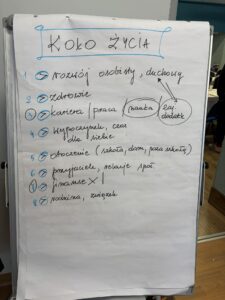 KOŁO ŻYCIA
1 rozwój osobisty, duchowy
2 zdrowie
3 kariera / praca / nauka / zaj. dodatk
4 wypoczynek, czas
dla siebie
5 otoczenie (szkoła, dom, poza szkołą)
6 przyjaciele, relacje społ.
7 finanse
8 rodzina, związek